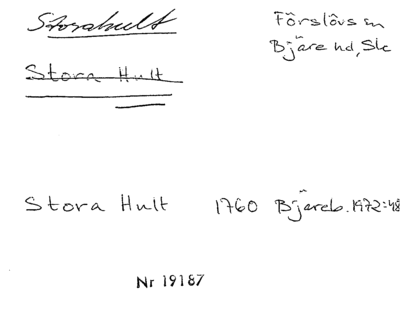 Storahult
Förslövs sn
Bjäre hd, Sk
Stora Hult
Stora Hult 1760 Bjäreb. 1972:48
Nr 19187